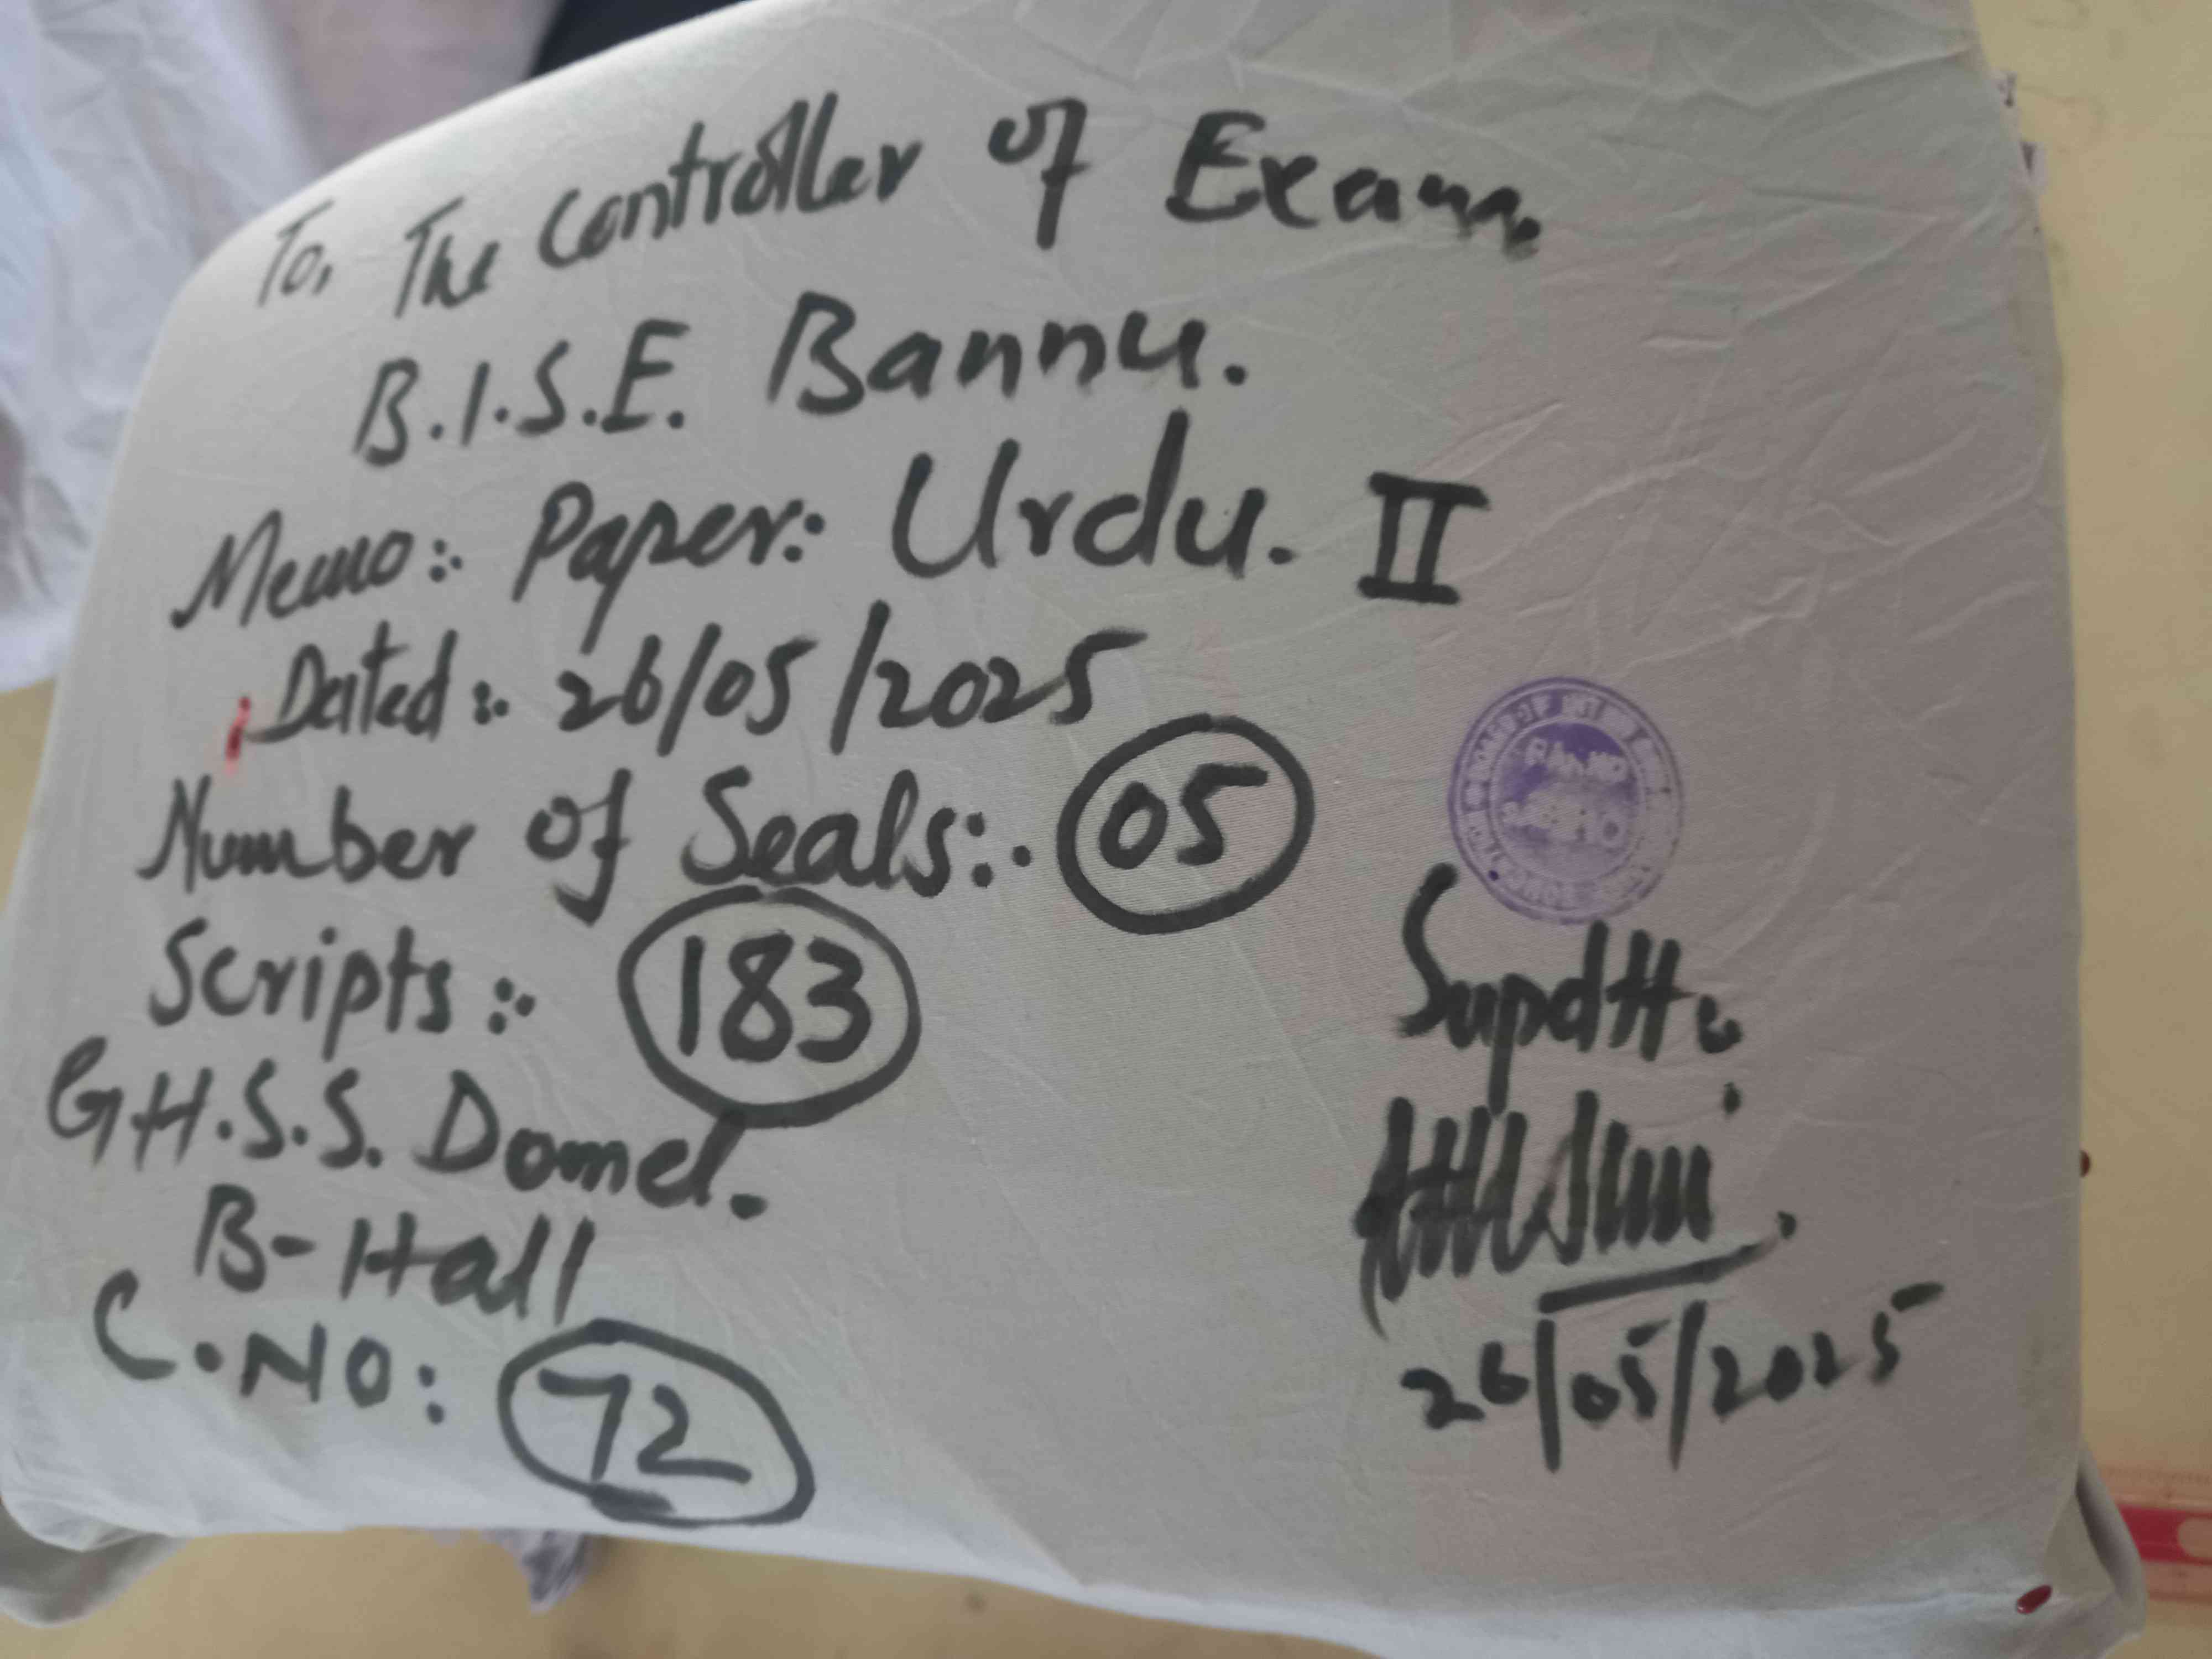 To, The Controller of Exam.
B.I.S.E. Bannu.
Memo:. Paper: Urdu. II
Dated:. 26/05/2025
Number of Seals:. 05
Scripts:. 183
G.H.S.S. Domel.
B-Hall
C.NO: 72
Supdtt:
26/05/2025